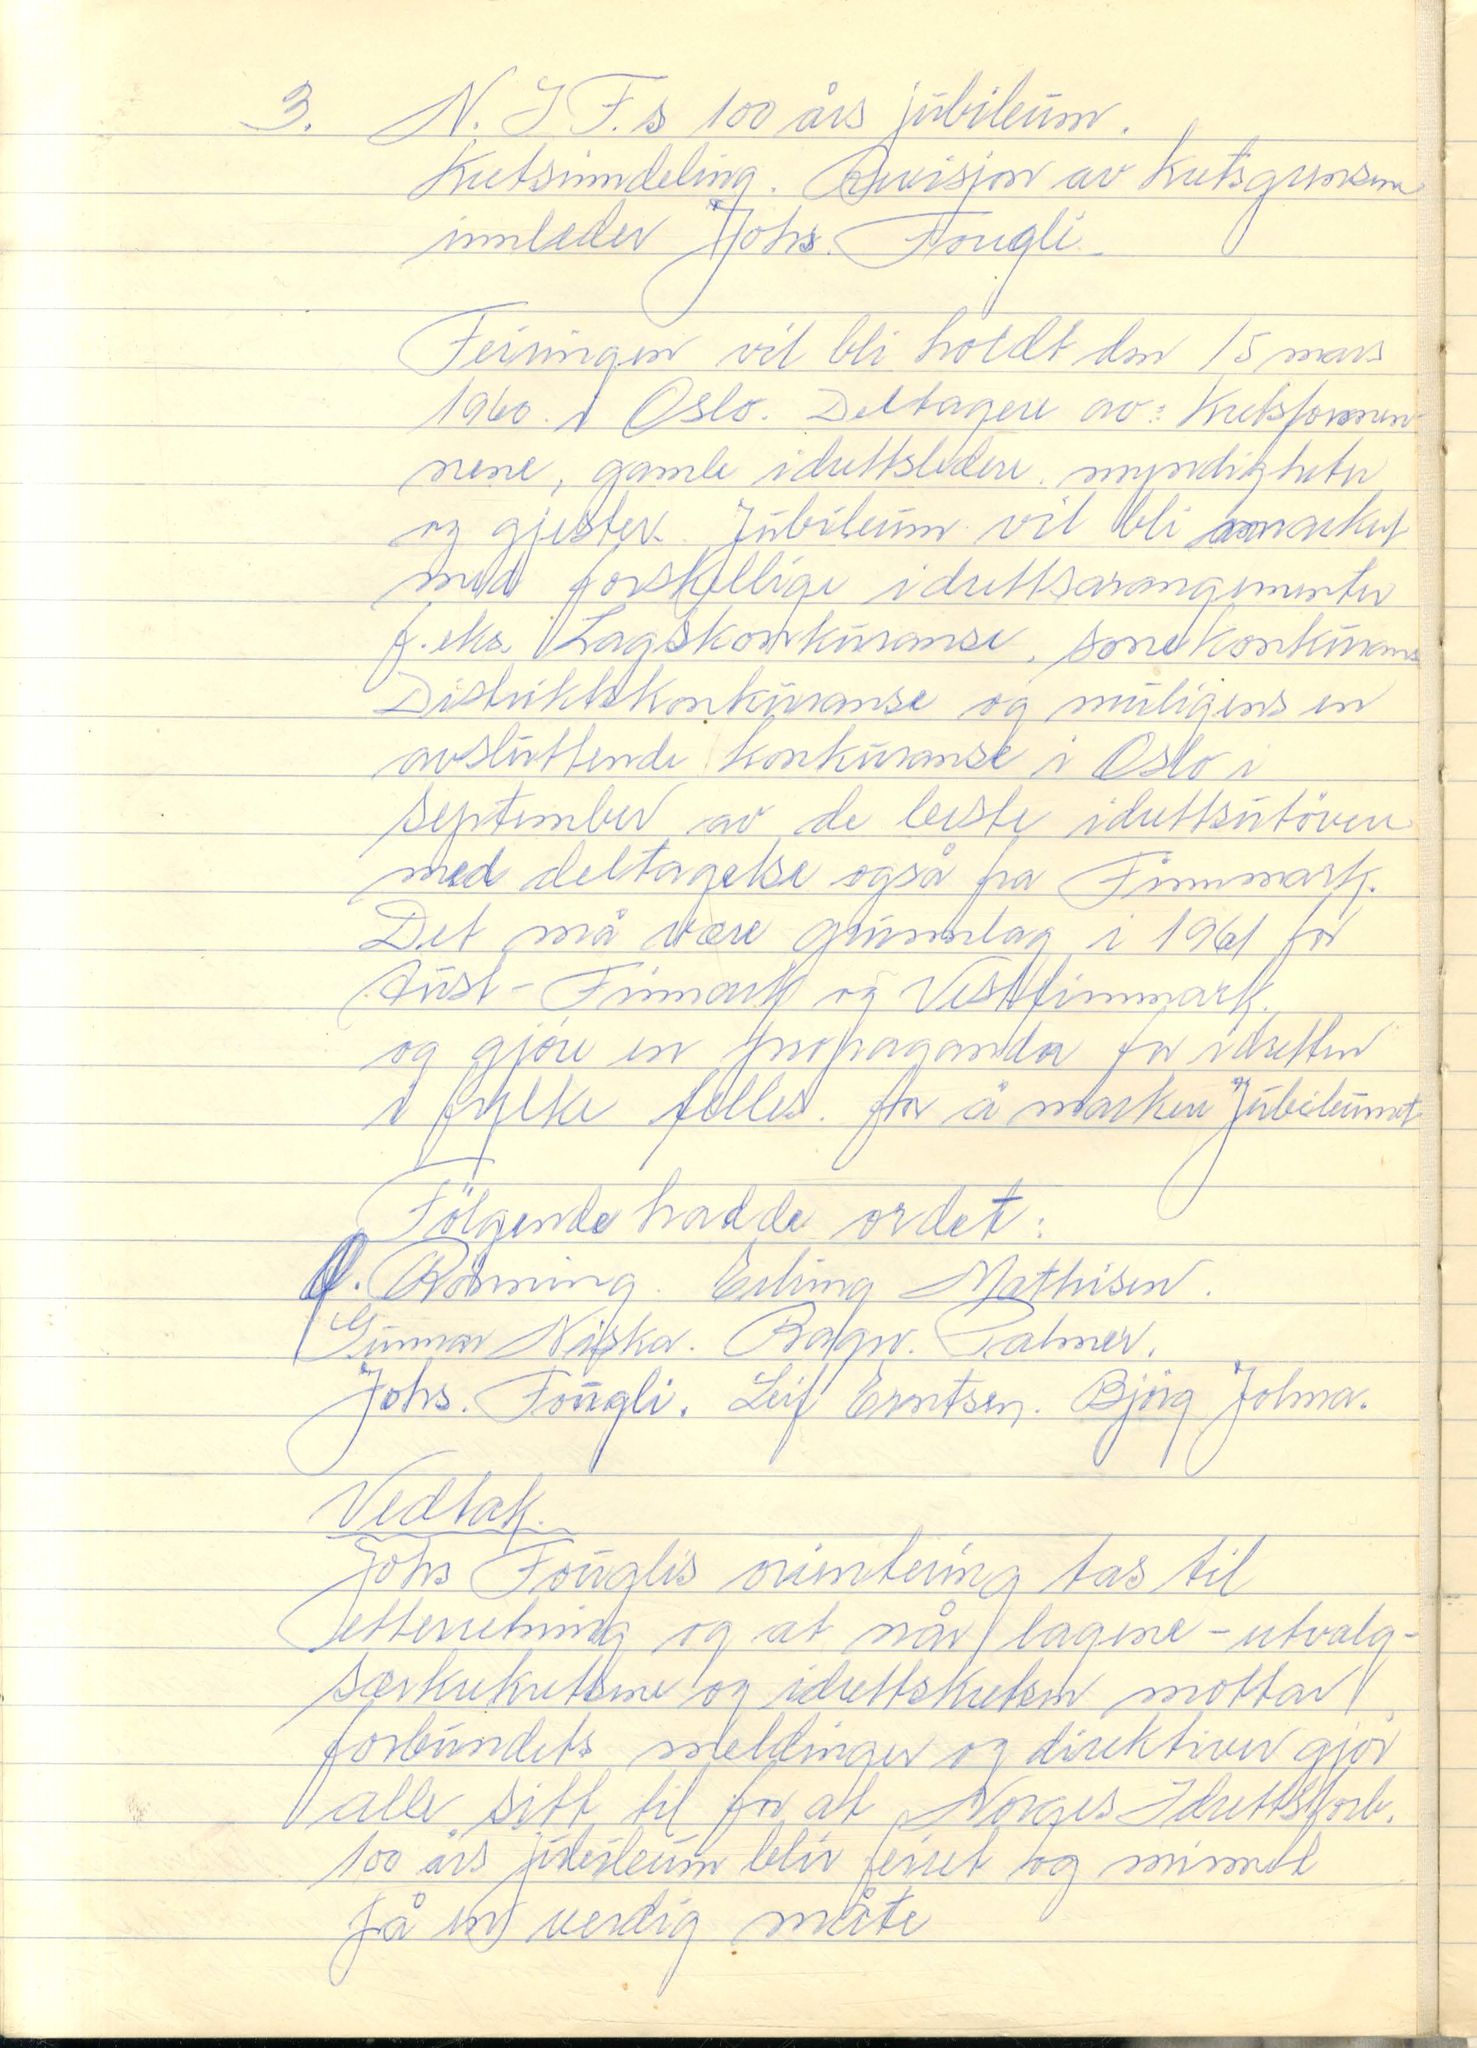 3. N. I F.s 100 års jubileum.
Kretsinndeling. Revisjon av kretsgrensene
innleder Johs. Fougli.
Feiringen vil bli holdt den 15 mars
1960. i Oslo. Deltagere av: Kretsformen-
nene, gamle idrettsledere, myndigheter
og gjester. Jubileum vil bli markert
med forskellige idrettsarangementer
f. eks. Lagskonkuranse, sonekonkurans
Distriktskonkuranse og muligens en
avsluttende konkuranse i Oslo i
september av de beste idrettsutövere
med deltagelse også fra Finnmark.
Det må være grunnlag i 1961 for
Aust-Finmark og Vestfinnmark.
og gjöre en propaganda for idretten
i fylke felles. for å markere Jubileumet
Fölgende hadde ordet:
O. Rönning. Erling Mathisen.
Gunnar Niska. Ragnv. Palmer.
Johs. Fougli. Leif Erntsen. Bjørg Johna.
Vedtak.
Johs Fouglis orientering tas til
etterretning og at når lagene - utvalg-
særkrekretsene og idrettskretsen mottar
forbundets meldinger og direktiver gjør
alle sitt til for at Norges Idrettsforb.
100 års jubileum bliv feiret og minnet
på en verdig måte